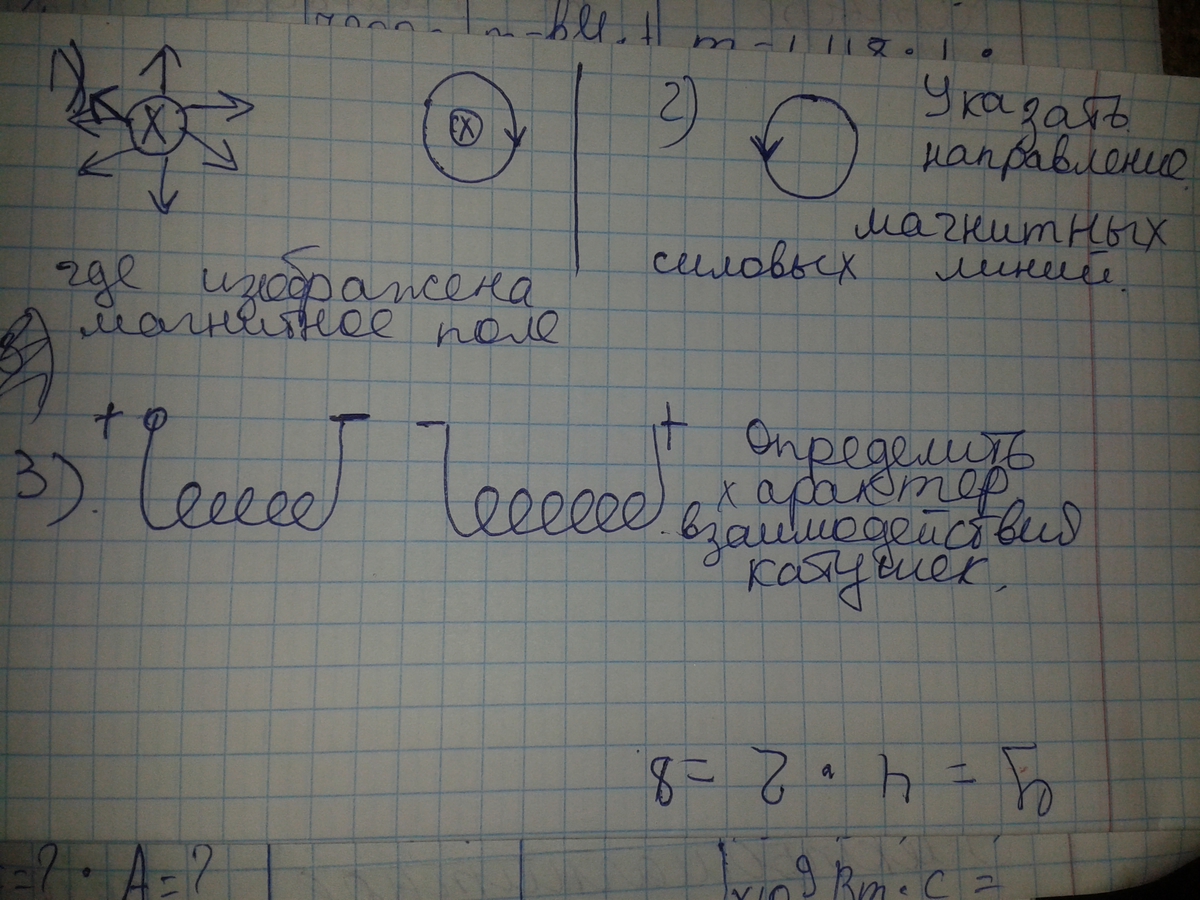 1)
X
X
2)
Указать
направление
магнитных
силовых линий.
где изображена
магнитное поле
3).
+ - - +
Определить
характер
взаимодействия
катушек.
= 4 · 2 = 8
=? · A=?